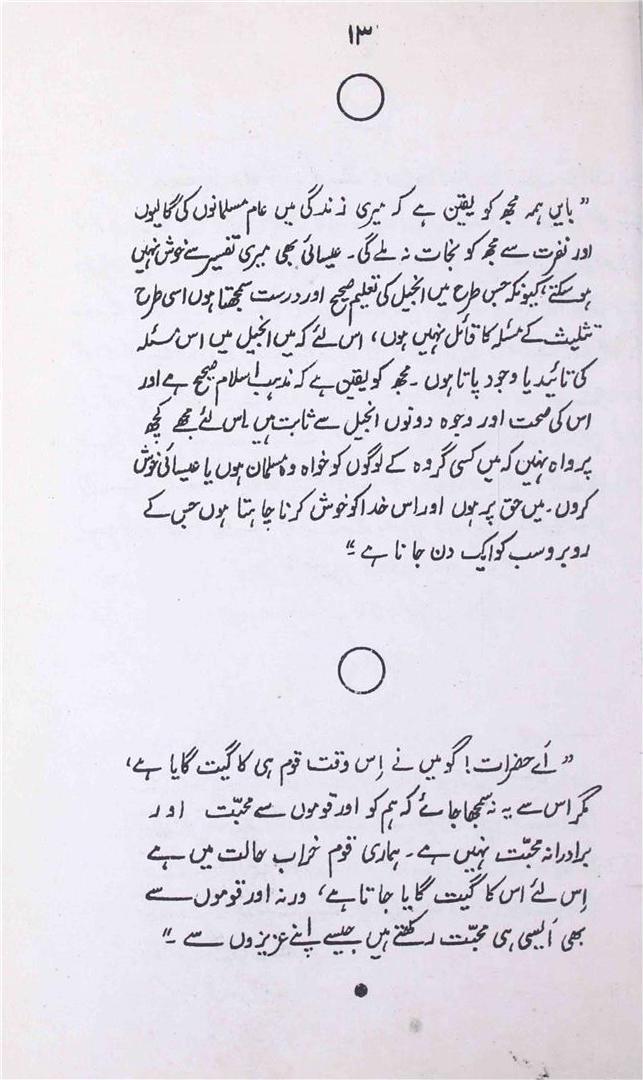 ۱۳
” بایں ہمہ مجھ کو یقین ہے کہ میری زندگی میں عام مسلمانوں کی گالیوں
اور نفرت سے مجھ کو نجات نہ ملے گی۔ عیسائی بھی میری تفسیر سے خوش نہیں
ہو سکتے، کیونکہ جس طرح میں انجیل کی تعلیم صحیح اور درست سمجھتا ہوں اسی طرح
تثلیث کے مسئلہ کا قائل نہیں ہوں، اس لئے کہ میں انجیل میں اس مسئلہ
کی تائید یا وجود پاتا ہوں۔ مجھ کو یقین ہے کہ مذہب اسلام صحیح ہے اور
اس کی صحت اور وجوہ دونوں انجیل سے ثابت ہیں۔ اس لئے مجھے کچھ
پرواہ نہیں کہ میں کسی گروہ کے لوگوں کو خواہ وہ مسلمان ہوں یا عیسائی خوش
کروں۔ میں حق پر ہوں اور اس خدا کو خوش کرنا چاہتا ہوں جس کے
روبرو سب کو ایک دن جانا ہے۔“
” اَے حضرات! گو میں نے اِس وقت قوم ہی کا گیت گایا ہے،
مگر اس سے یہ نہ سمجھا جائے کہ ہم کو اور قوموں سے محبّت اور
برادرانہ محبّت نہیں ہے۔ ہماری قوم خراب حالت میں ہے
اِس لئے اس کا گیت گایا جاتا ہے، ورنہ اور قوموں سے
بھی اَیسی ہی محبّت رکھتے ہیں جیسے اپنے عزیزوں سے۔“